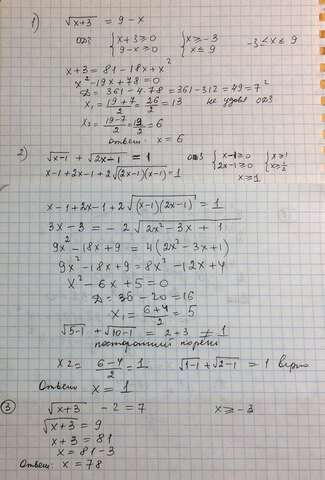 1) √x+3 = 9 - x
ОДЗ { x+3 ≥ 0 { x ≥ -3 -3 ≤ x ≤ 9
9-x ≥ 0 x ≤ 9
x+3 = 81 - 18x + x²
x² - 19x + 78 = 0
D = 361 - 4·78 = 361 - 312 = 49 = 7²
x₁ = (19+7)/2 = 26/2 = 13 не удовл ОДЗ
x₂ = (19-7)/2 = 12/2 = 6
Ответ: x = 6
2) √x-1 + √2x-1 = 1 ОДЗ { x-1 ≥ 0 { x ≥ 1
2x-1 ≥ 0 x ≥ 1/2
x-1+2x-1+2√(2x-1)(x-1) = 1 x ≥ 1
x-1+2x-1+2√(x-1)(2x-1) = 1
3x-3 = -2√2x²-3x+1
9x²-18x+9 = 4(2x²-3x+1)
9x²-18x+9 = 8x²-12x+4
x²-6x+5 = 0
D = 36-20 = 16
x₁ = (6+4)/2 = 5
√5-1 + √10-1 = 2+3 ≠ 1
посторонний корень
x₂ = (6-4)/2 = 1 √1-1 + √2-1 = 1 верно
Ответ: x = 1
3 √x+3 - 2 = 7 x ≥ -3
√x+3 = 9
x+3 = 81
x = 81-3
Ответ: x = 78